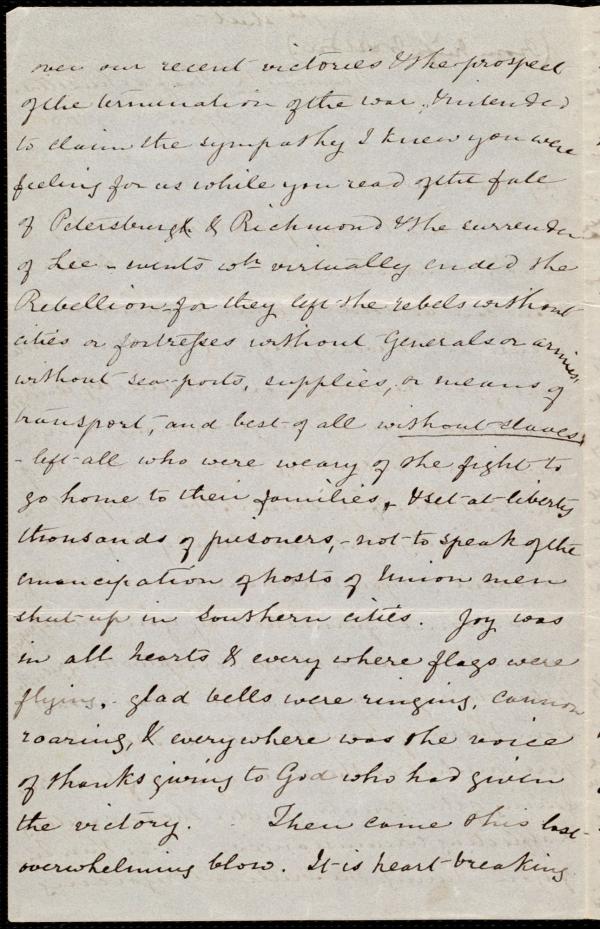 over our recent victories & the prospect
of the termination of the war, & intended
to claim the sympathy I knew you were
feeling for us while you read of the fall
of Petersburg & Richmond & the surrender
of Lee - events wh virtually ended the
Rebellion, for they left the rebels without
cities or fortresses without Generals or armies,
without sea-ports, supplies, or means of
transport, and best of all without slaves,
- left all who were weary of the fight to
go home to their families, & set at liberty
thousands of prisoners, - not to speak of the
emancipation of hosts of Union men
shut up in Southern cities. Joy was
in all hearts & every where flags were
flying, glad bells were ringing, cannon
roaring, & everywhere was the voice
of thanksgiving to God who had given
the victory. Then came this last
overwhelming blow. It is heart-breaking